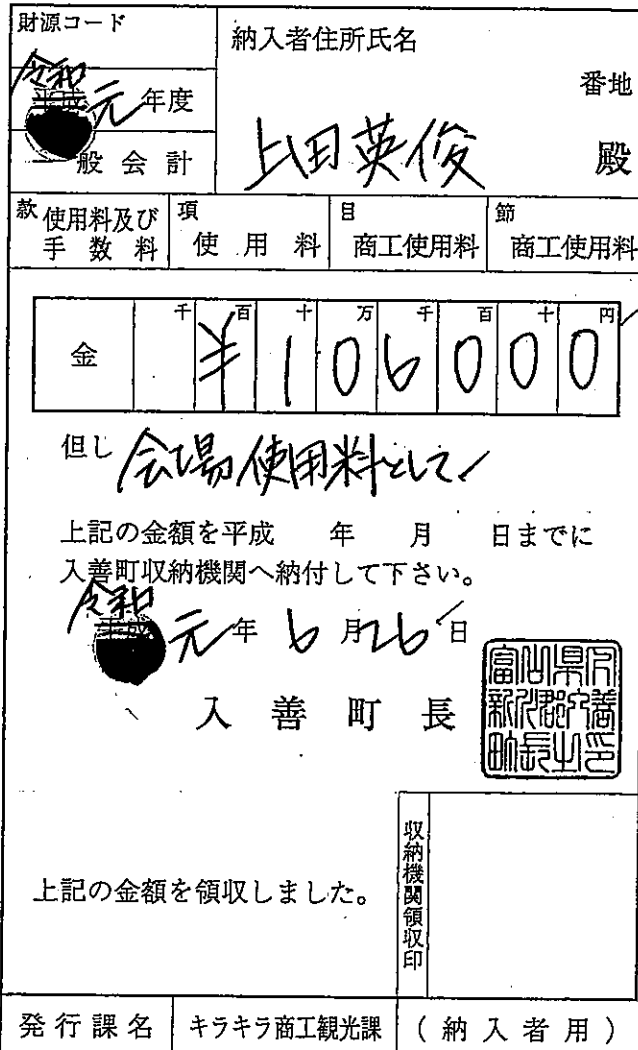 財源コード
納入者住所氏名
番地
令和
平成 元 年度
一般会計
上田英俊 殿
款 使用料及び手数料 項 使用料 目 商工使用料 節 商工使用料
千 百 十 万 千 百 十 円
金 ¥106000
但し 会場使用料として
上記の金額を平成 年 月 日までに
入善町収納機関へ納付して下さい。
令和
平成 元 年 6 月 26 日
入善町長
富山県下新川郡入善町長之印
上記の金額を領収しました。
収納機関領収印
発行課名 キラキラ商工観光課 (納入者用)